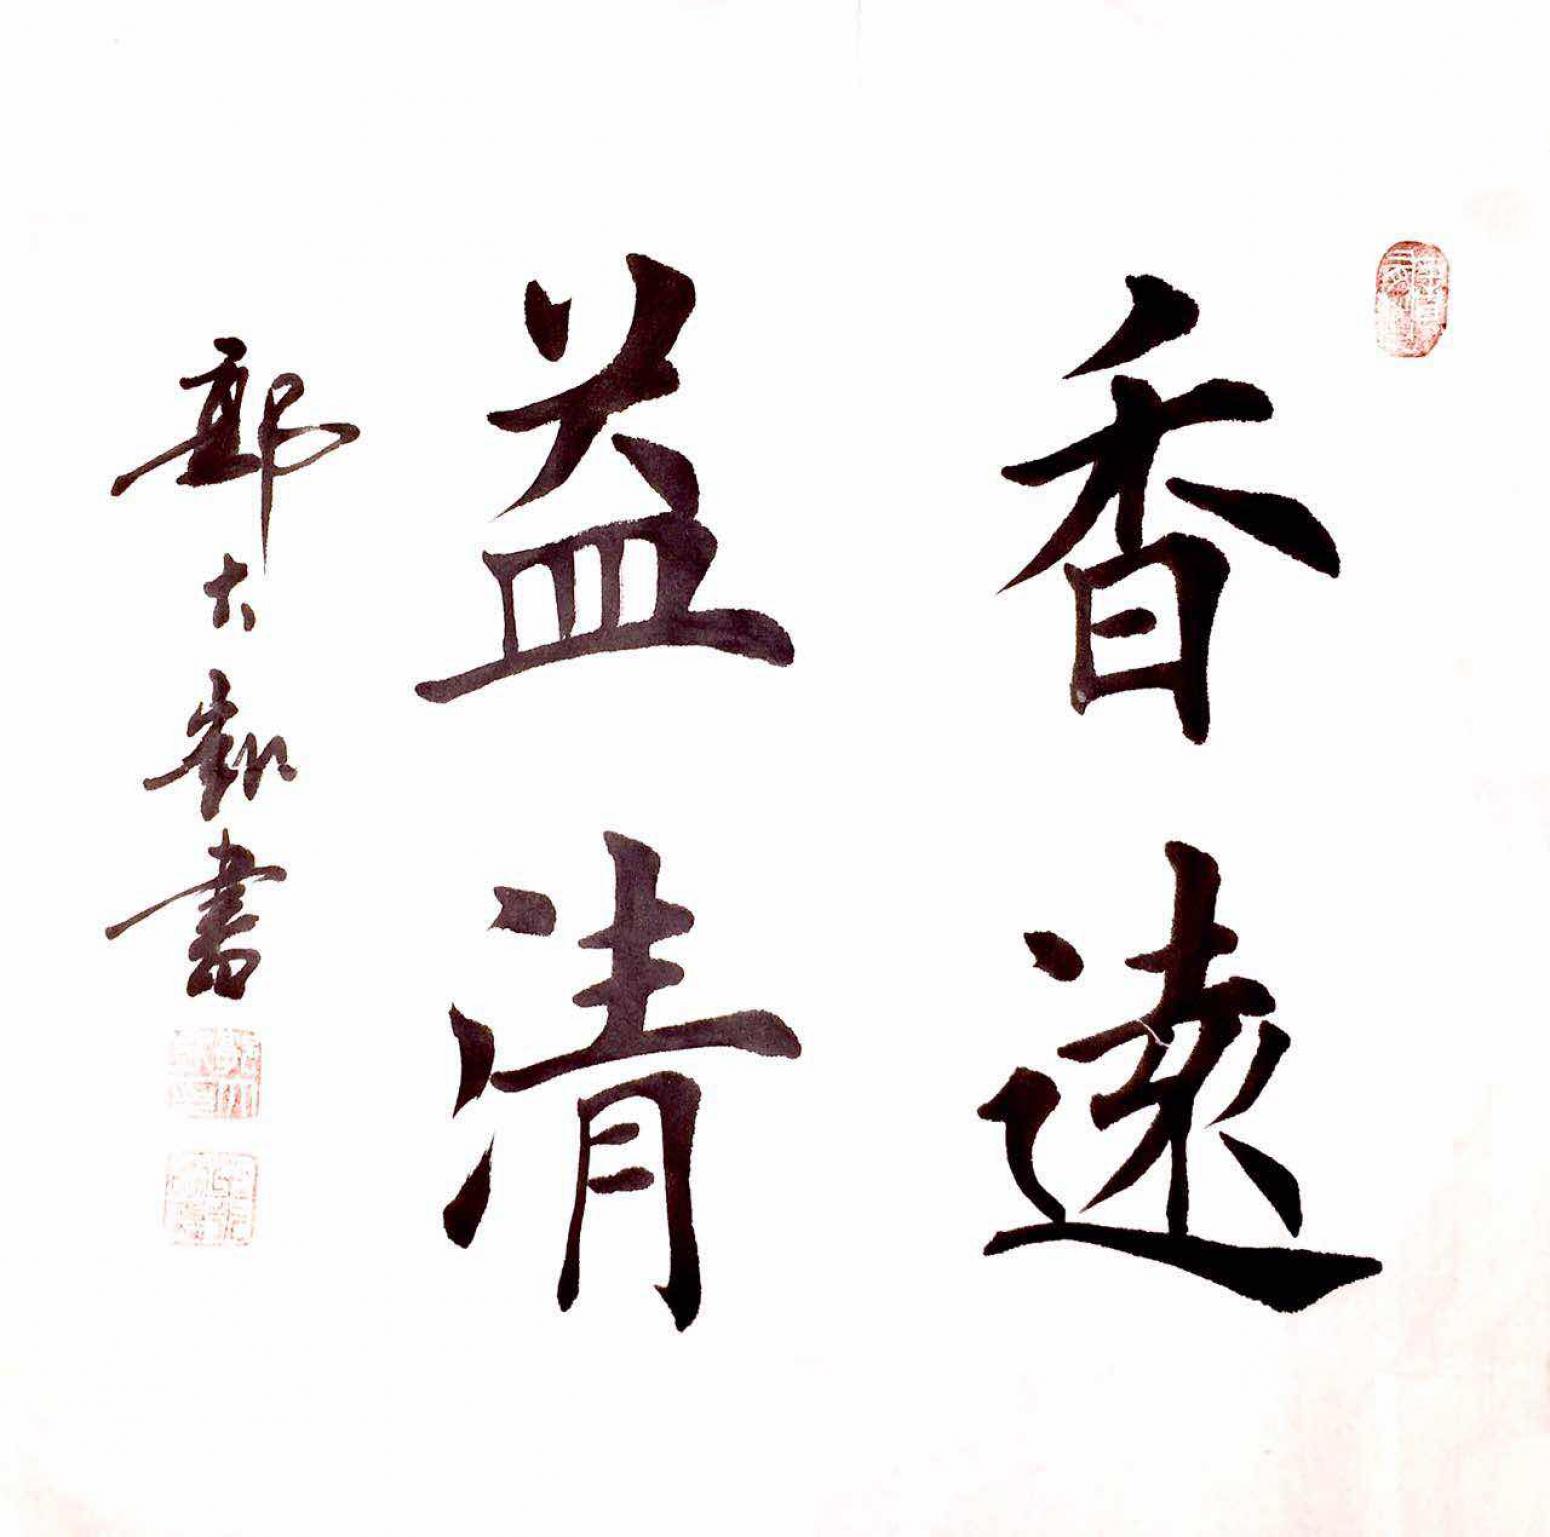 香遠
益清
郭大勲書